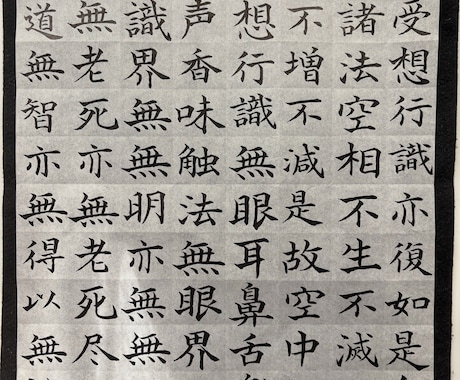 受想行識亦復如是
諸法空相不生不滅
不増不減是故空中
想行識無眼耳鼻舌
声香味触法無眼界
識界無無明亦無無
無老死亦無老死尽
道無智亦無得以無